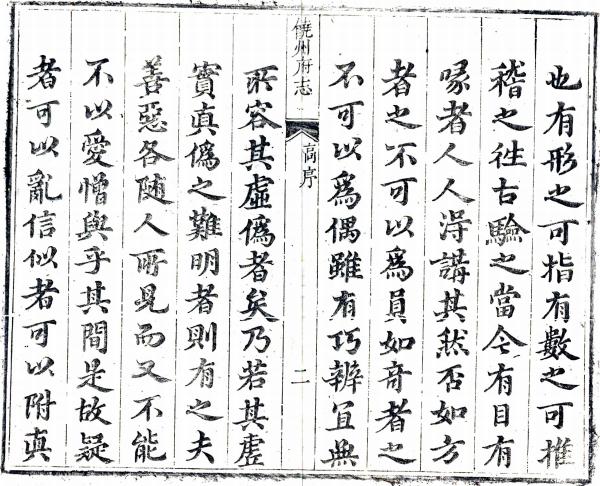 也有形之可指有數之可推
稽之徃古驗之當今有目有
喙者人人淂講其然否如方
者之不可以爲員如竒者之
不可以爲偶雖有巧辨宜無
饒州府志
高序
二
所容其虛僞者矣乃若其虛
實真僞之難明者則有之夫
善惡各随人所見而又不能
不以愛憎與乎其間是故疑
者可以亂信似者可以附真